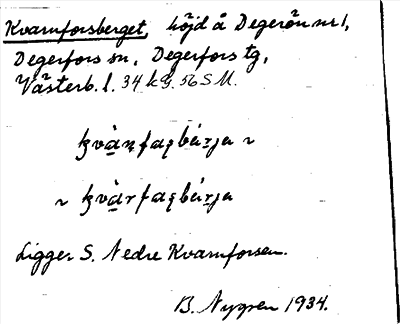 Kvarnforsberget, höjd å Degerön nr 1,
Degerfors sn, Degerfors tg,
Västerb. l. 34 kG. 56 S M.
kvàṇfaʂbár̲ja ~
~ kvàrfaʂbár̲ja
Ligger S. Nedre Kvarnforsen.
B. Nygren 1934.